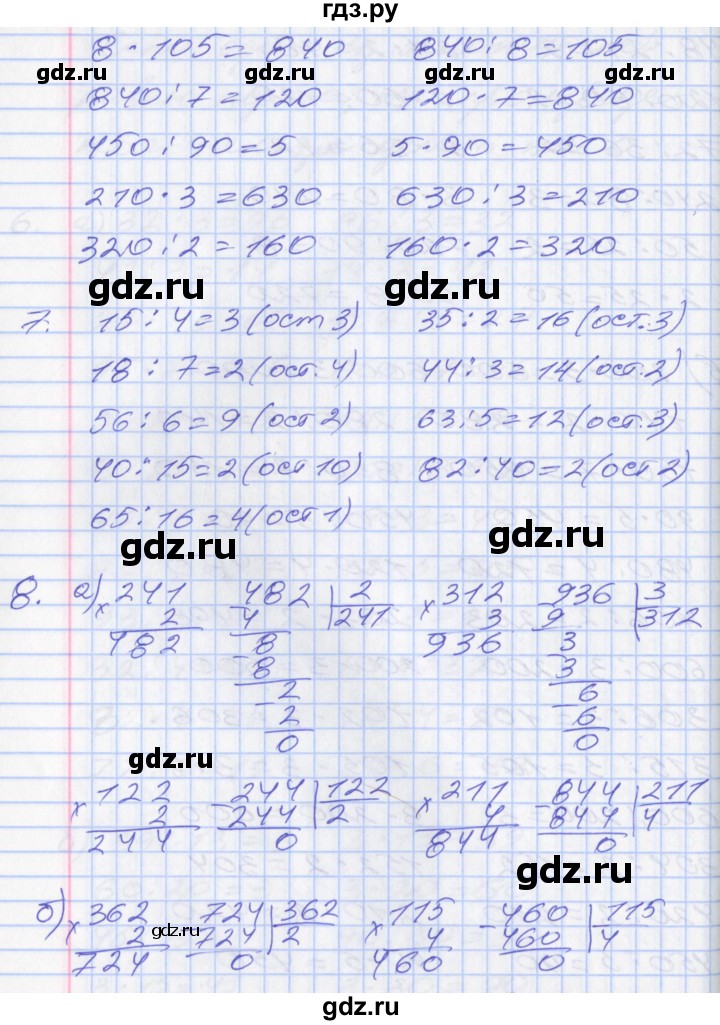 гдз.ру
8 · 105 = 840 840 : 8 = 105
gdz.ru gdz.ru
840 : 7 = 120 120 · 7 = 840
450 : 90 = 5 5 · 90 = 450
210 · 3 = 630 630 : 3 = 210
320 : 2 = 160 160 · 2 = 320
gdz.ru gdz.ru
7. 15 : 4 = 3 (ост 3) 35 : 2 = 16 (ост. 3)
18 : 7 = 2 (ост. 4) 44 : 3 = 14 (ост. 2)
56 : 6 = 9 (ост 2) 63 : 5 = 12 (ост. 3)
40 : 15 = 2 (ост 10) 82 : 40 = 2 (ост 2)
65 : 16 = 4 (ост 1)
gdz.ru gdz.ru
8. а) × 241 - 482 | 2 × 312 - 936 | 3
2 4 241 3 9 312
482 - 8 936 - 3
8 3
- 2 - 6
2 6
0 0
gdz.ru
× 122 - 244 | 122 × 211 - 844 | 211
2 244 2 4 844 4
244 0 844 0
gdz.ru
б) × 362 - 724 | 362 × 115 - 460 | 115
2 gdz.ru 724 2 4 460 4
724 0 460 0
gdz.ru